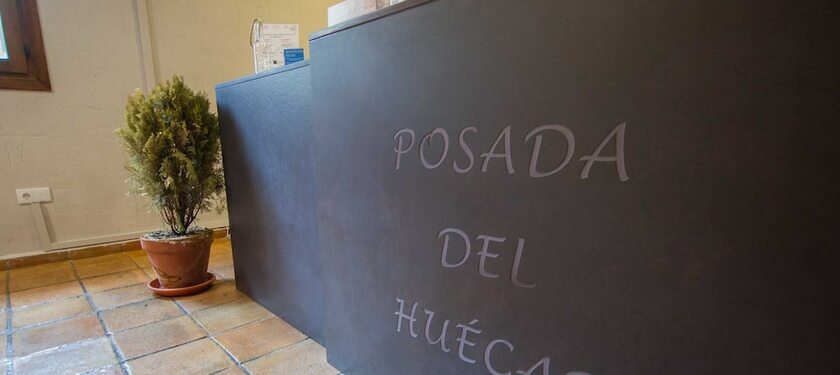 POSADA
DEL
HUÉCAR